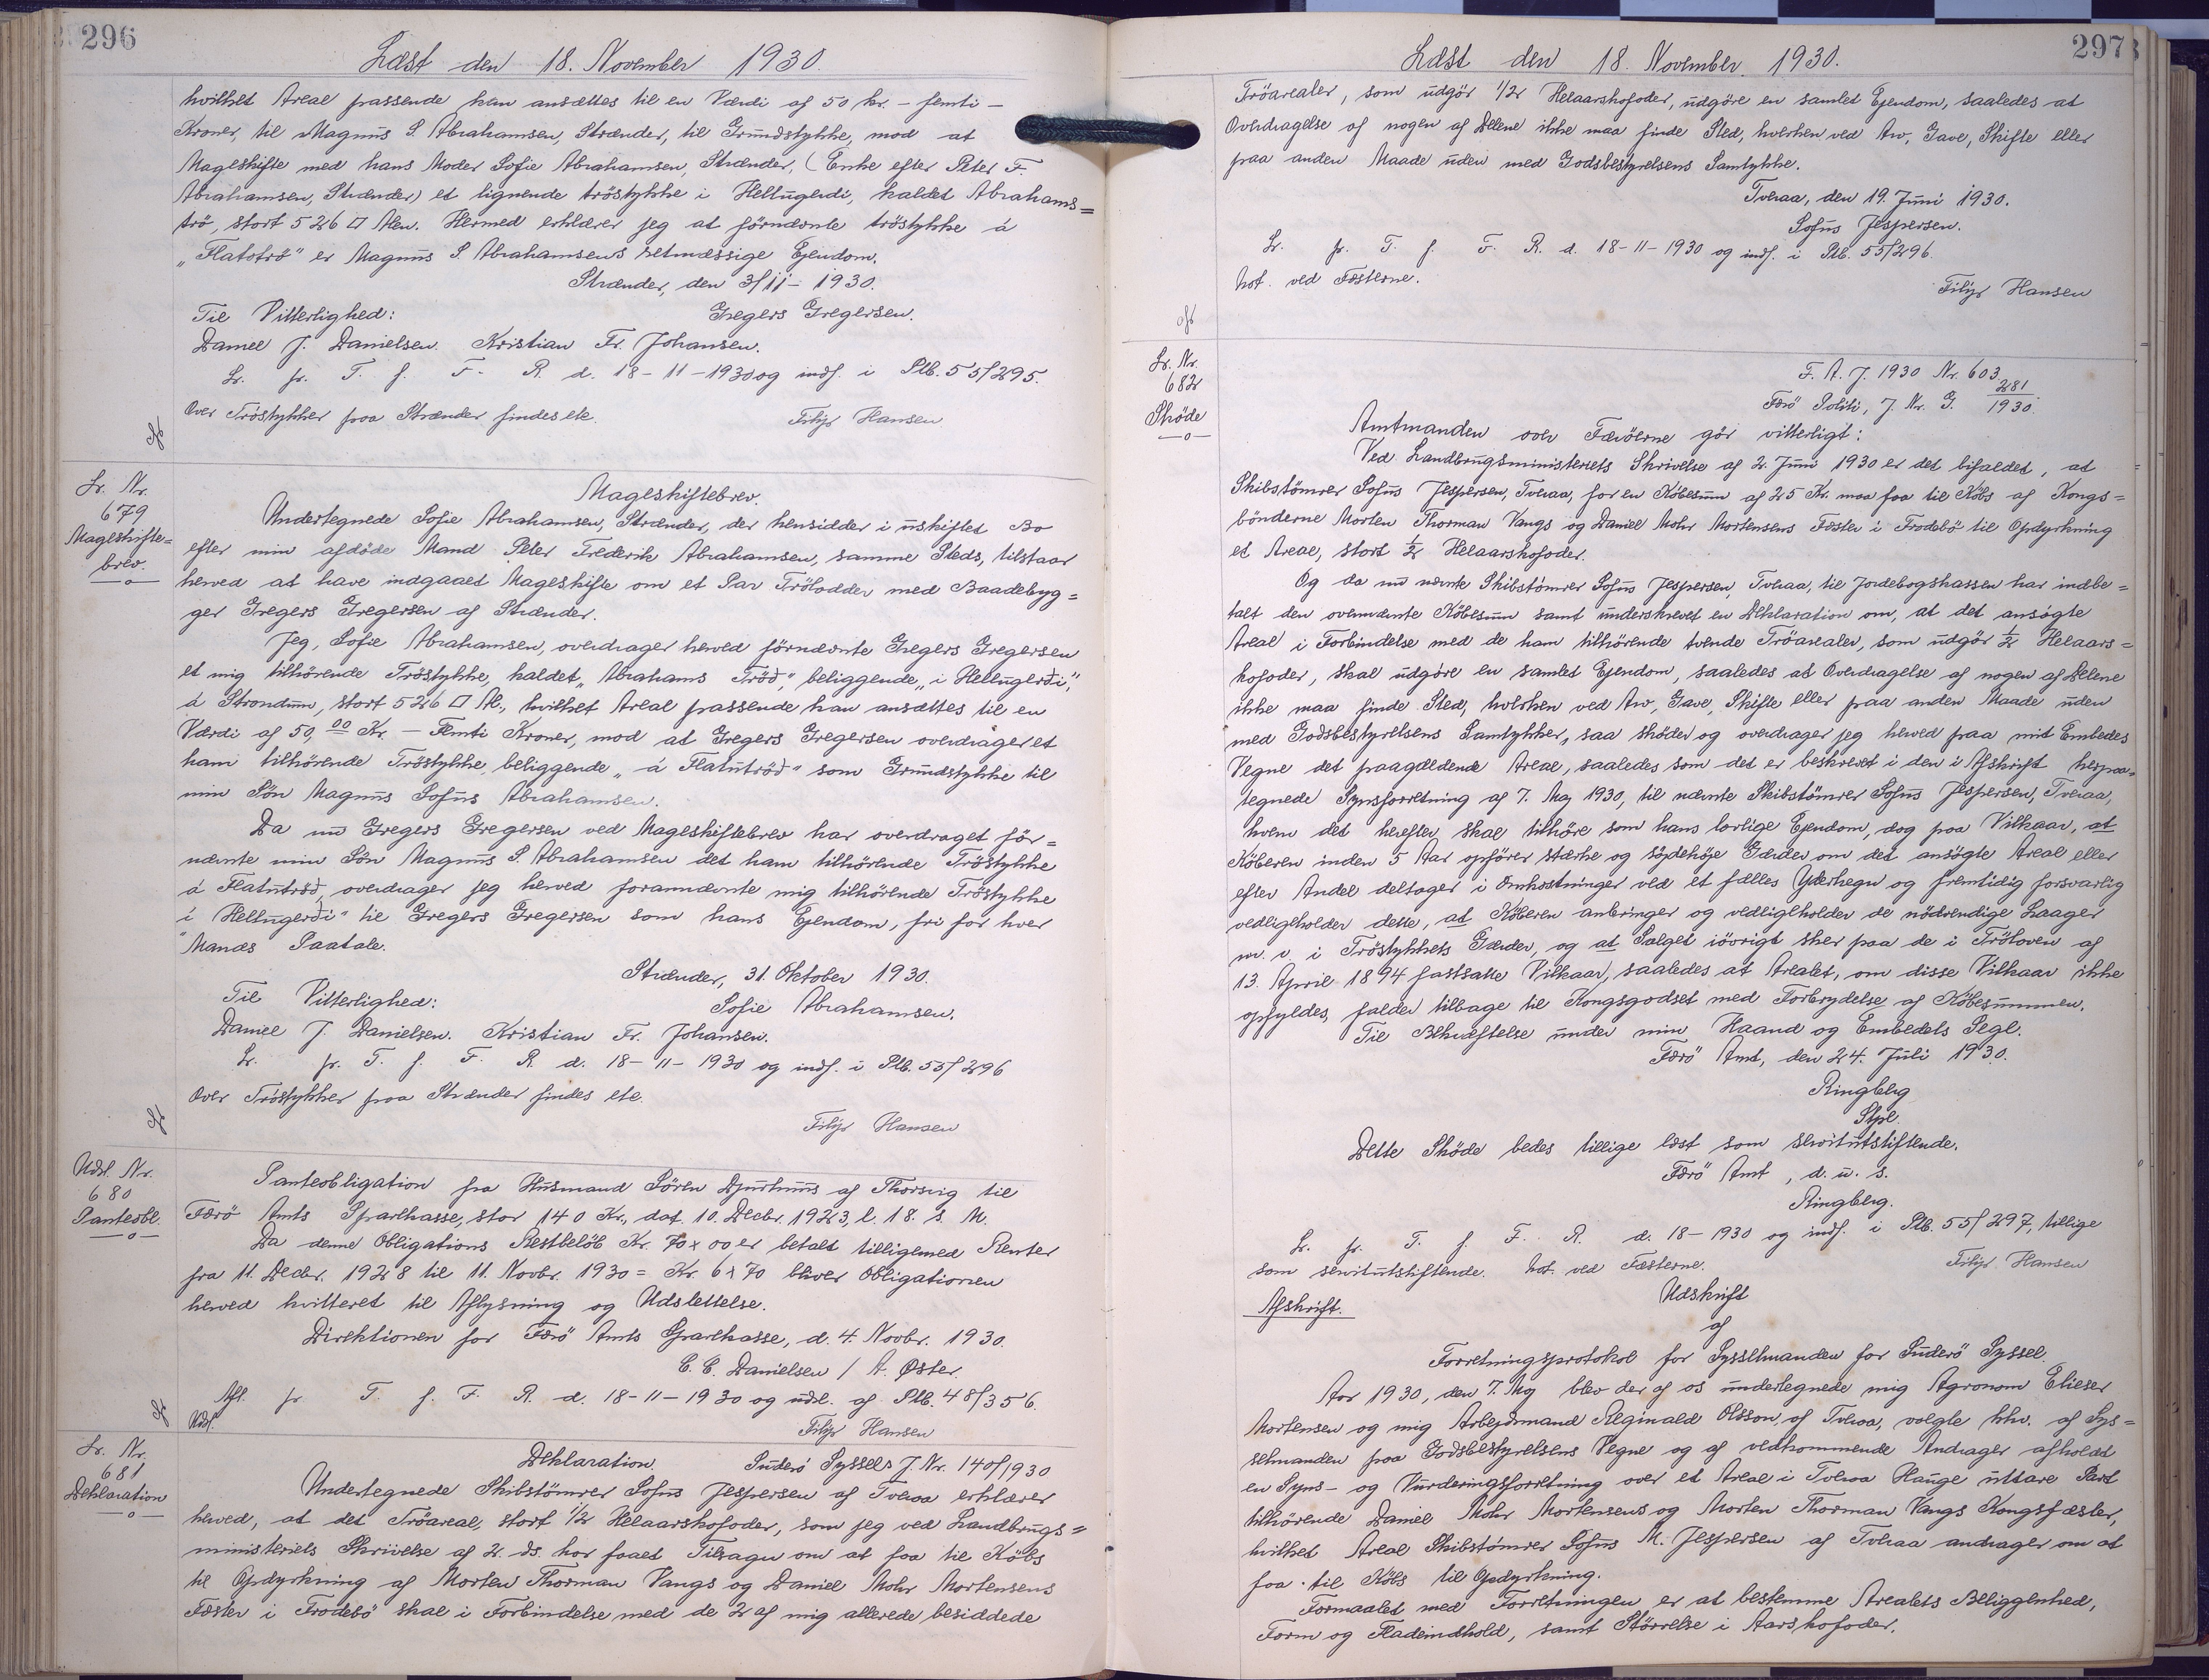 296
Læst den 18. November 1930
hvilket Areal passende kan ansættes til en Værdi af 50 kr. - femti -
Kroner, til Magnus S. Abrahamsen, Strænder, til Grundstykke, mod at
Mageskifte med hans Moder Sofie Abrahamsen, Strænder, (Enke efter Peter F.
Abrahamsen, Strænder) et lignende tröstykke i Hellugerdi, kaldet Abrahams=
trö, stort 526 □ Alen. Hermed erklærer jeg at förnævnte tröstykke á
"Flatotrö" er Magnus S. Abrahamsens retmæssige Ejendom.
Strænder, den 3/11 - 1930.
Til Vitterlighed: Gregers Gregersen.
Daniel J. Danielsen. Kristian Fr. Johansen.
Lr. fr. T. f. F. R. d. 18-11-1930 og indf. i Ptb. 55/295.
Over Tröstykker paa Strænder findes etc. Filip Hansen
Lr. Nr.
679
Mageskifte=
brev.
Mageskiftebrev.
Undertegnede Sofie Abrahamsen, Strænder, der hensidder i uskiftet Bo
efter min afdöde Mand Peter Frederik Abrahamsen, samme Steds, tilstaar
herved at have indgaaet Mageskifte om et Par Trölodder med Baadebyg=
ger Gregers Gregersen af Strænder.
Jeg, Sofie Abrahamsen, overdrager herved förnævnte Gregers Gregersen
et mig tilhörende Tröstykke, kaldet "Abrahams Tröð", beliggende "i Hellugerði",
á Strondum, stort 526 □ Al., hvilket Areal passende kan ansættes til en
Værdi af 50,00 Kr. - Femti Kroner, mod at Gregers Gregersen overdrager et
ham tilhörende Tröstykke, beliggende "á Flatutröð" som Grundstykke til
min Sön Magnus Sofus Abrahamsen.
Da nu Gregers Gregersen ved Mageskiftebrev har overdraget för=
nævnte min Sön Magnus S. Abrahamsen det ham tilhörende Tröstykke
á Flatutröð, overdrager jeg herved forannævnte mig tilhörende Tröstykke
"i Hellugerði" til Gregers Gregersen som hans Ejendom, fri for hver
Mands Paatale.
Strænder, 31. Oktober 1930.
Til Vitterlighed: Sofie Abrahamsen.
Daniel J. Danielsen. Kristian Fr. Johansen.
Lr. fr. T. f. F. R. d. 18-11-1930 og indf. i Ptb. 55/296
Over Tröstykker paa Strænder findes etc.
Filip Hansen
Udsl. Nr.
680
Panteobl.
Panteobligation fra Husmand Sören Djurhuus af Thorsvig til
Færö Amts Sparekasse, stor 140 Kr., dat. 10. Decbr. 1923, l. 18. s. M.
Da denne Obligations Restbelöb Kr. 70 x 00 er betalt tilligemed Renter
fra 11. Decbr. 1928 til 11. Novbr. 1930 = Kr. 6 x 70 bliver Obligationen
herved kvitteret til Aflysning og Udslettelse.
Direktionen for Færö Amts Sparekasse, d. 4. Novbr. 1930.
C. C. Danielsen / A. Øster.
Afl. fr T. f. F. R. d. 18-11-1930 og udsl. af Ptb. 48/356.
Udsl. Filip Hansen
Lr. Nr.
681
Deklaration
Deklaration. Suderö Syssels J. Nr. 140/1930
Undertegnede Skibstömrer Sofus Jespersen af Tveraa erklærer
herved, at det Tröareal, stort 1/2 Helaarskofoder, som jeg ved Landbrugs=
ministeriets Skrivelse af 2. ds. har faaet Tilsagn om at faa til Købs
til Opdyrkning af Morten Thorman Vangs og Daniel Mohr Mortensens
Fæster i Frodebö skal i Forbindelse med de 2 af mig allerede besiddede
297
Læst den 18. November. 1930.
Tröarealer, som udgör 1/2 Helaarskofoder, udgöre en samlet Ejendom, saaledes at
Overdragelse af nogen af Delene ikke maa finde Sted, hverken ved Arv, Gave, Skifte eller
paa anden Maade uden med Godsbestyrelsens Samtykke.
Tveraa, den 19. Juni 1930.
Sofus Jespersen.
Lr. fr. T. f. F. R. d. 18-11-1930 og indf. i Ptb. 55/296.
Not. ved Fæsterne. Filip Hansen
Lr. Nr.
682
Sköde
F. A. J. 1930 Nr. 603
Færö Politi, J. Nr. G. 281/1930.
Amtmanden over Færöerne gör vitterligt:
Ved Landbrugsministeriets Skrivelse af 2. Juni 1930 er det bifaldet, at
Skibstömrer Sofus Jespersen, Tveraa, for en Købesum af 25 Kr. maa faa til Købs af Kongs=
bönderne Morten Thorman Vangs og Daniel Mohr Mortensens Fæster i Frodebö til Opdyrkning
et Areal, stort 1/2 Helaarskofoder.
Og da nu nævnte Skibstömrer Sofus Jespersen, Tveraa, til Jordebogskassen har indbe=
talt den ovennævnte Købesum samt underskrevet en Deklaration om, at det ansögte
Areal i Forbindelse med de ham tilhörende tvende Tröarealer, som udgör 1/2 Helaars=
kofoder, skal udgöre en samlet Ejendom, saaledes at Overdragelse af nogen af Delene
ikke maa finde Sted, hverken ved Arv, Gave, Skifte eller paa anden Maade uden
med Godsbestyrelsens Samtykke, saa sköder og overdrager jeg herved paa mit Embedes
Vegne det paagældende Areal, saaledes som det er beskrevet i den i Afskrift herpaa=
tegnede Synsforretning af 7. Maj 1930, til nævnte Skibstömrer Sofus Jespersen, Tveraa,
hvem det herefter skal tilhöre som hans lovlige Ejendom, dog paa Vilkaar, at
Köberen inden 5 Aar opförer stærke og söjdehöje Gærder om det ansögte Areal eller
efter Andel deltager i Omkostninger ved et fælles Yderhegn og fremtidig forsvarlig
vedligeholder dette, at Köberen anbringer og vedligeholder de nödvendige Laager
m. v. i Tröstykkets Gærder, og at Salget iövrigt sker paa de i Tröloven af
13. April 1894 fastsatte Vilkaar, saaledes at Arealet, om disse Vilkaar ikke
opfyldes, falder tilbage til Kongsgodset med Forbrydelse af Købesummen.
Til Bekræftelse under min Haand og Embedets Segl.
Færö Amt, den 24. Juli 1930.
Ringberg
Stpl.
Dette Sköde bedes tillige læst som servitutstiftende.
Færö Amt, d. u. s.
Ringberg.
Lr. fr. T. f. F. R. d. 18-1930 og indf. i Ptb. 55/297, tillige
som servitutstiftende. Not. ved Fæsterne. Filip Hansen
Afskrift. Udskrift
af
Forretningsprotokol for Sysselmanden for Suderö Syssel.
Aar 1930, den 7. Maj blev der af os undertegnede mig Agronom Elieser
Mortensen og mig Arbejdsmand Reginald Olsson, af Tveraa, valgte hhv. af Sys=
selmanden paa Godsbestyrelsens Vegne og af vedkommende Andrager afholdt
en Syns- og Vurderingsforretning over et Areal i Tveraa Hauge uttare Part
tilhörende Daniel Mohr Mortensens og Morten Thorman Vangs Kongsfæster,
hvilket Areal Skibstömrer Sofus M. Jespersen af Tveraa andrager om at
faa til Købs til Opdyrkning.
Formaalet med Forretningen er at bestemme Arealets Beliggenhed,
Form og Fladeindhold, samt Störrelse i Aarskofoder.